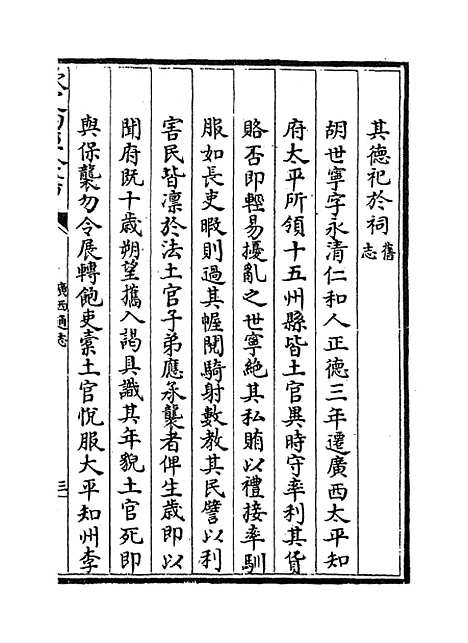 其德祀於祠舊志
胡世寧字永清仁和人正德三年遷廣西太平知
府太平所領十五州縣皆土官異時守率利其貨
賂否即輕易擾亂之世寧絶其私賄以禮接率馴
服如長吏暇則過其幄閱騎射數教其民譬以利
害民皆凛於法土官子弟應承襲者俾生歲即以
聞府既十歲朔望攜入謁具識其年貌土官死即
與保襲勿令展轉飽吏橐土官悅服大平知州李
廣西通志
三